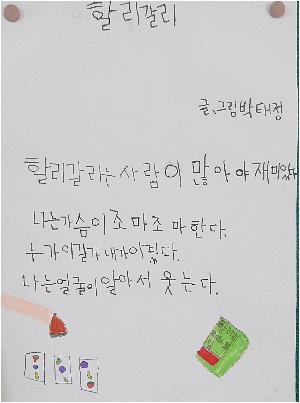 할리갈리
글, 그림 박태정
할리갈리는 사람이 많아야 재미있다
나는 가슴이 조마조마 한다.
누가 이길까 내가 이겼다.
나는 얼굴이 알아서 웃는다.